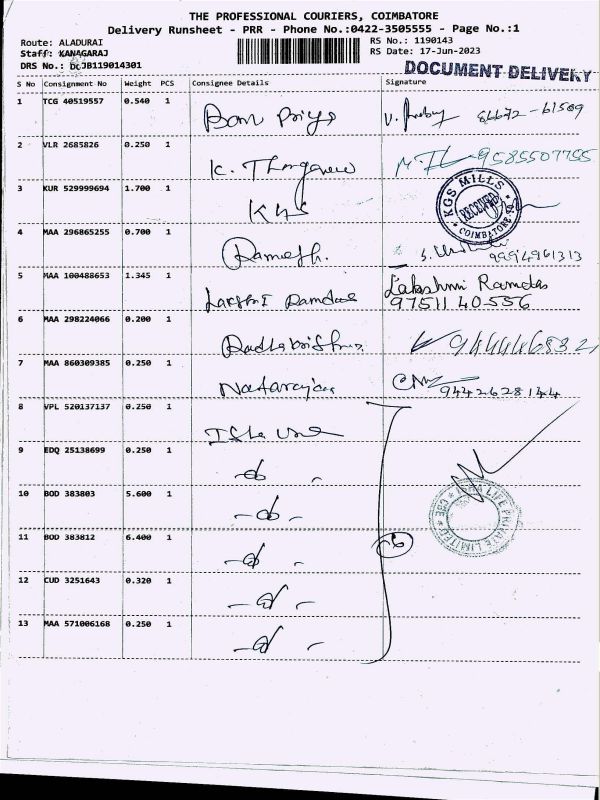 THE PROFESSIONAL COURIERS, COIMBATORE
Delivery Runsheet - PRR - Phone No.:0422-3505555 - Page No.:1
Route: ALADURAI
Staff: KANAGARAJ
DRS No.: DCJB119014301
RS No.: 1190143
RS Date: 17-Jun-2023
DOCUMENT DELIVERY
S No Consignment No Weight PCS Consignee Details Signature
1 TCG 40519557 0.540 1 Ban Priya 84672-61509
2 VLR 2685826 0.250 1 K. 9585507755
3 KUR 529999694 1.700 1 KGS
KGS MILLS RECEIVED COIMBATORE
4 MAA 296865255 0.700 1 Ramesh. 9994961313
5 MAA 100488653 1.345 1 Lakshmi Ramdas Lakshmi Ramdas
97511 40556
6 MAA 298224066 0.200 1 Radhakrishna 944446832
7 MAA 860309385 0.250 1 Natarajan 9442628144
8 VPL 520137137 0.250 1 Isha
9 EDQ 25138699 0.250 1
10 BOD 383803 5.600 1
LIFE PRIVATE LIMITED CBE
11 BOD 383812 6.400 1
12 CUD 3251643 0.320 1
13 MAA 571006168 0.250 1